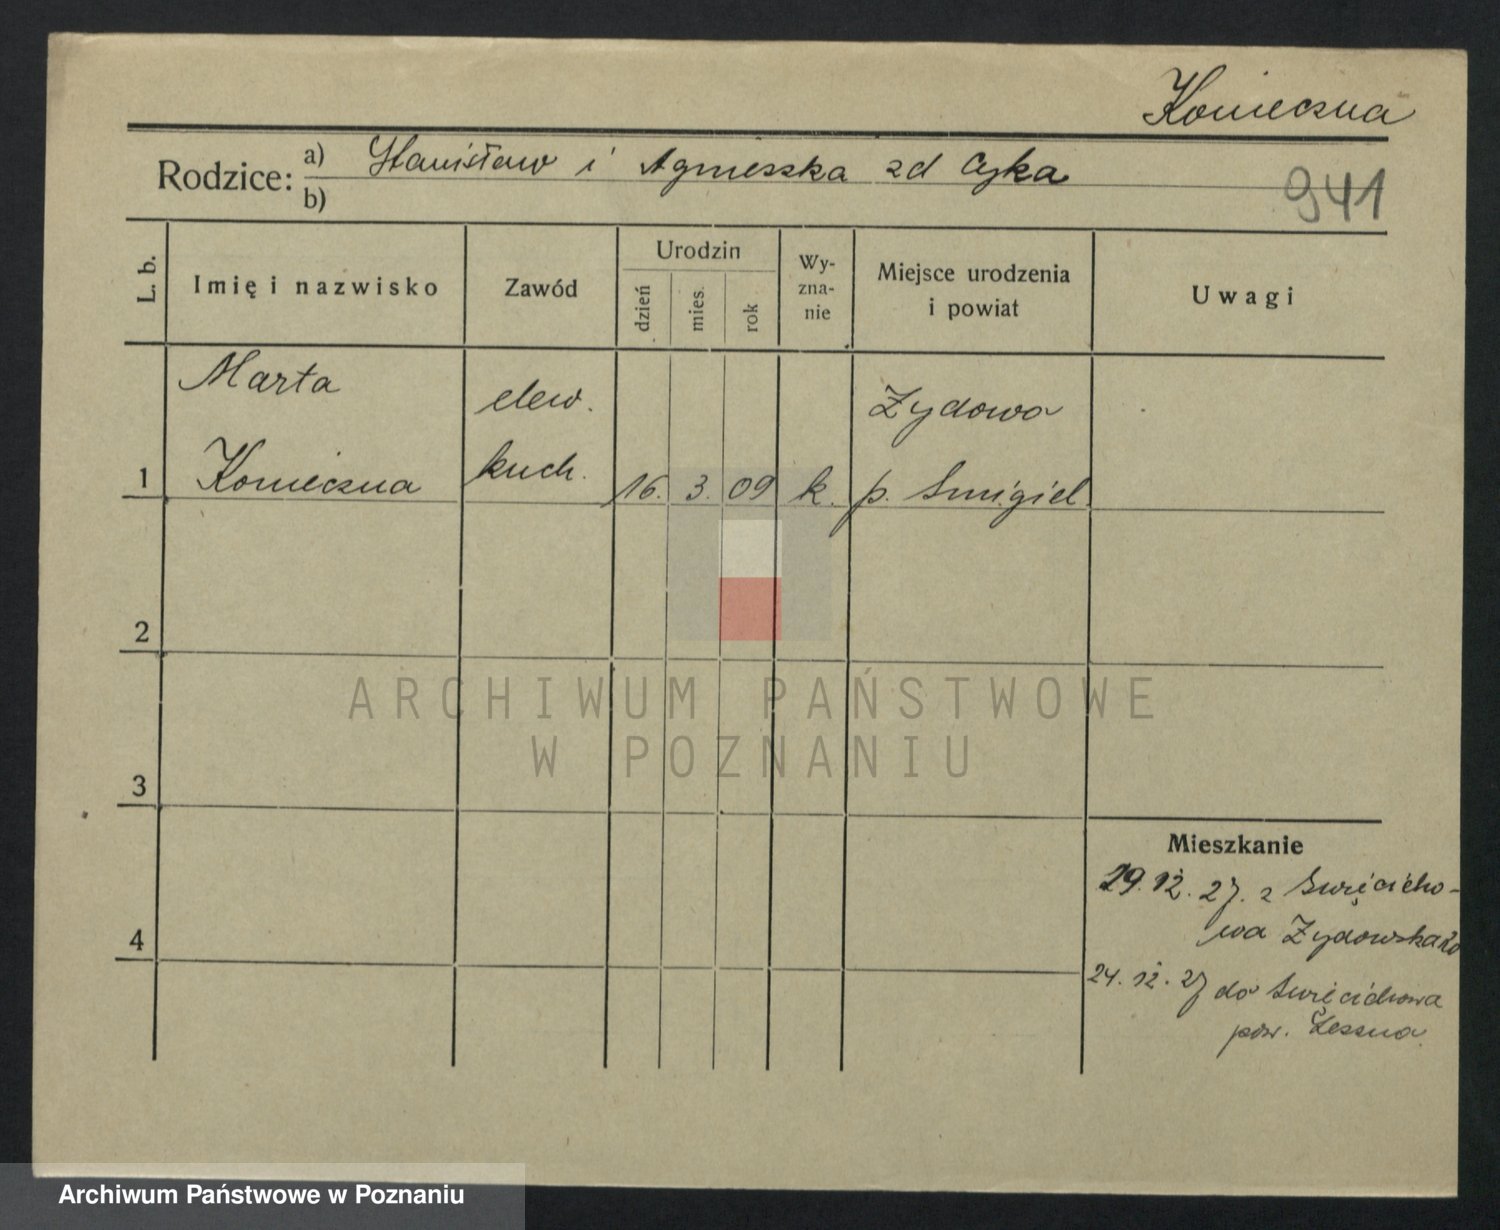 Konieczna
Rodzice: a) Stanisław i Agnieszka zd Cyka
b)
941
L. b.
Imię i nazwisko
Zawód
Urodzin
dzień
mies.
rok
Wy-
zna-
nie
Miejsce urodzenia
i powiat
Uwagi
Marta
elew.
Żydowo
1
Konieczna
kuch.
16. 3. 09 k. p. Smigiel
2
ARCHIWUM PAŃSTWOWE
W POZNANIU
3
Mieszkanie
29. 12. 27. z Święcicho-
wa Żydowska
4
24. 12. 27 do Święcichowa
pow. Leszna
Archiwum Państwowe w Poznaniu